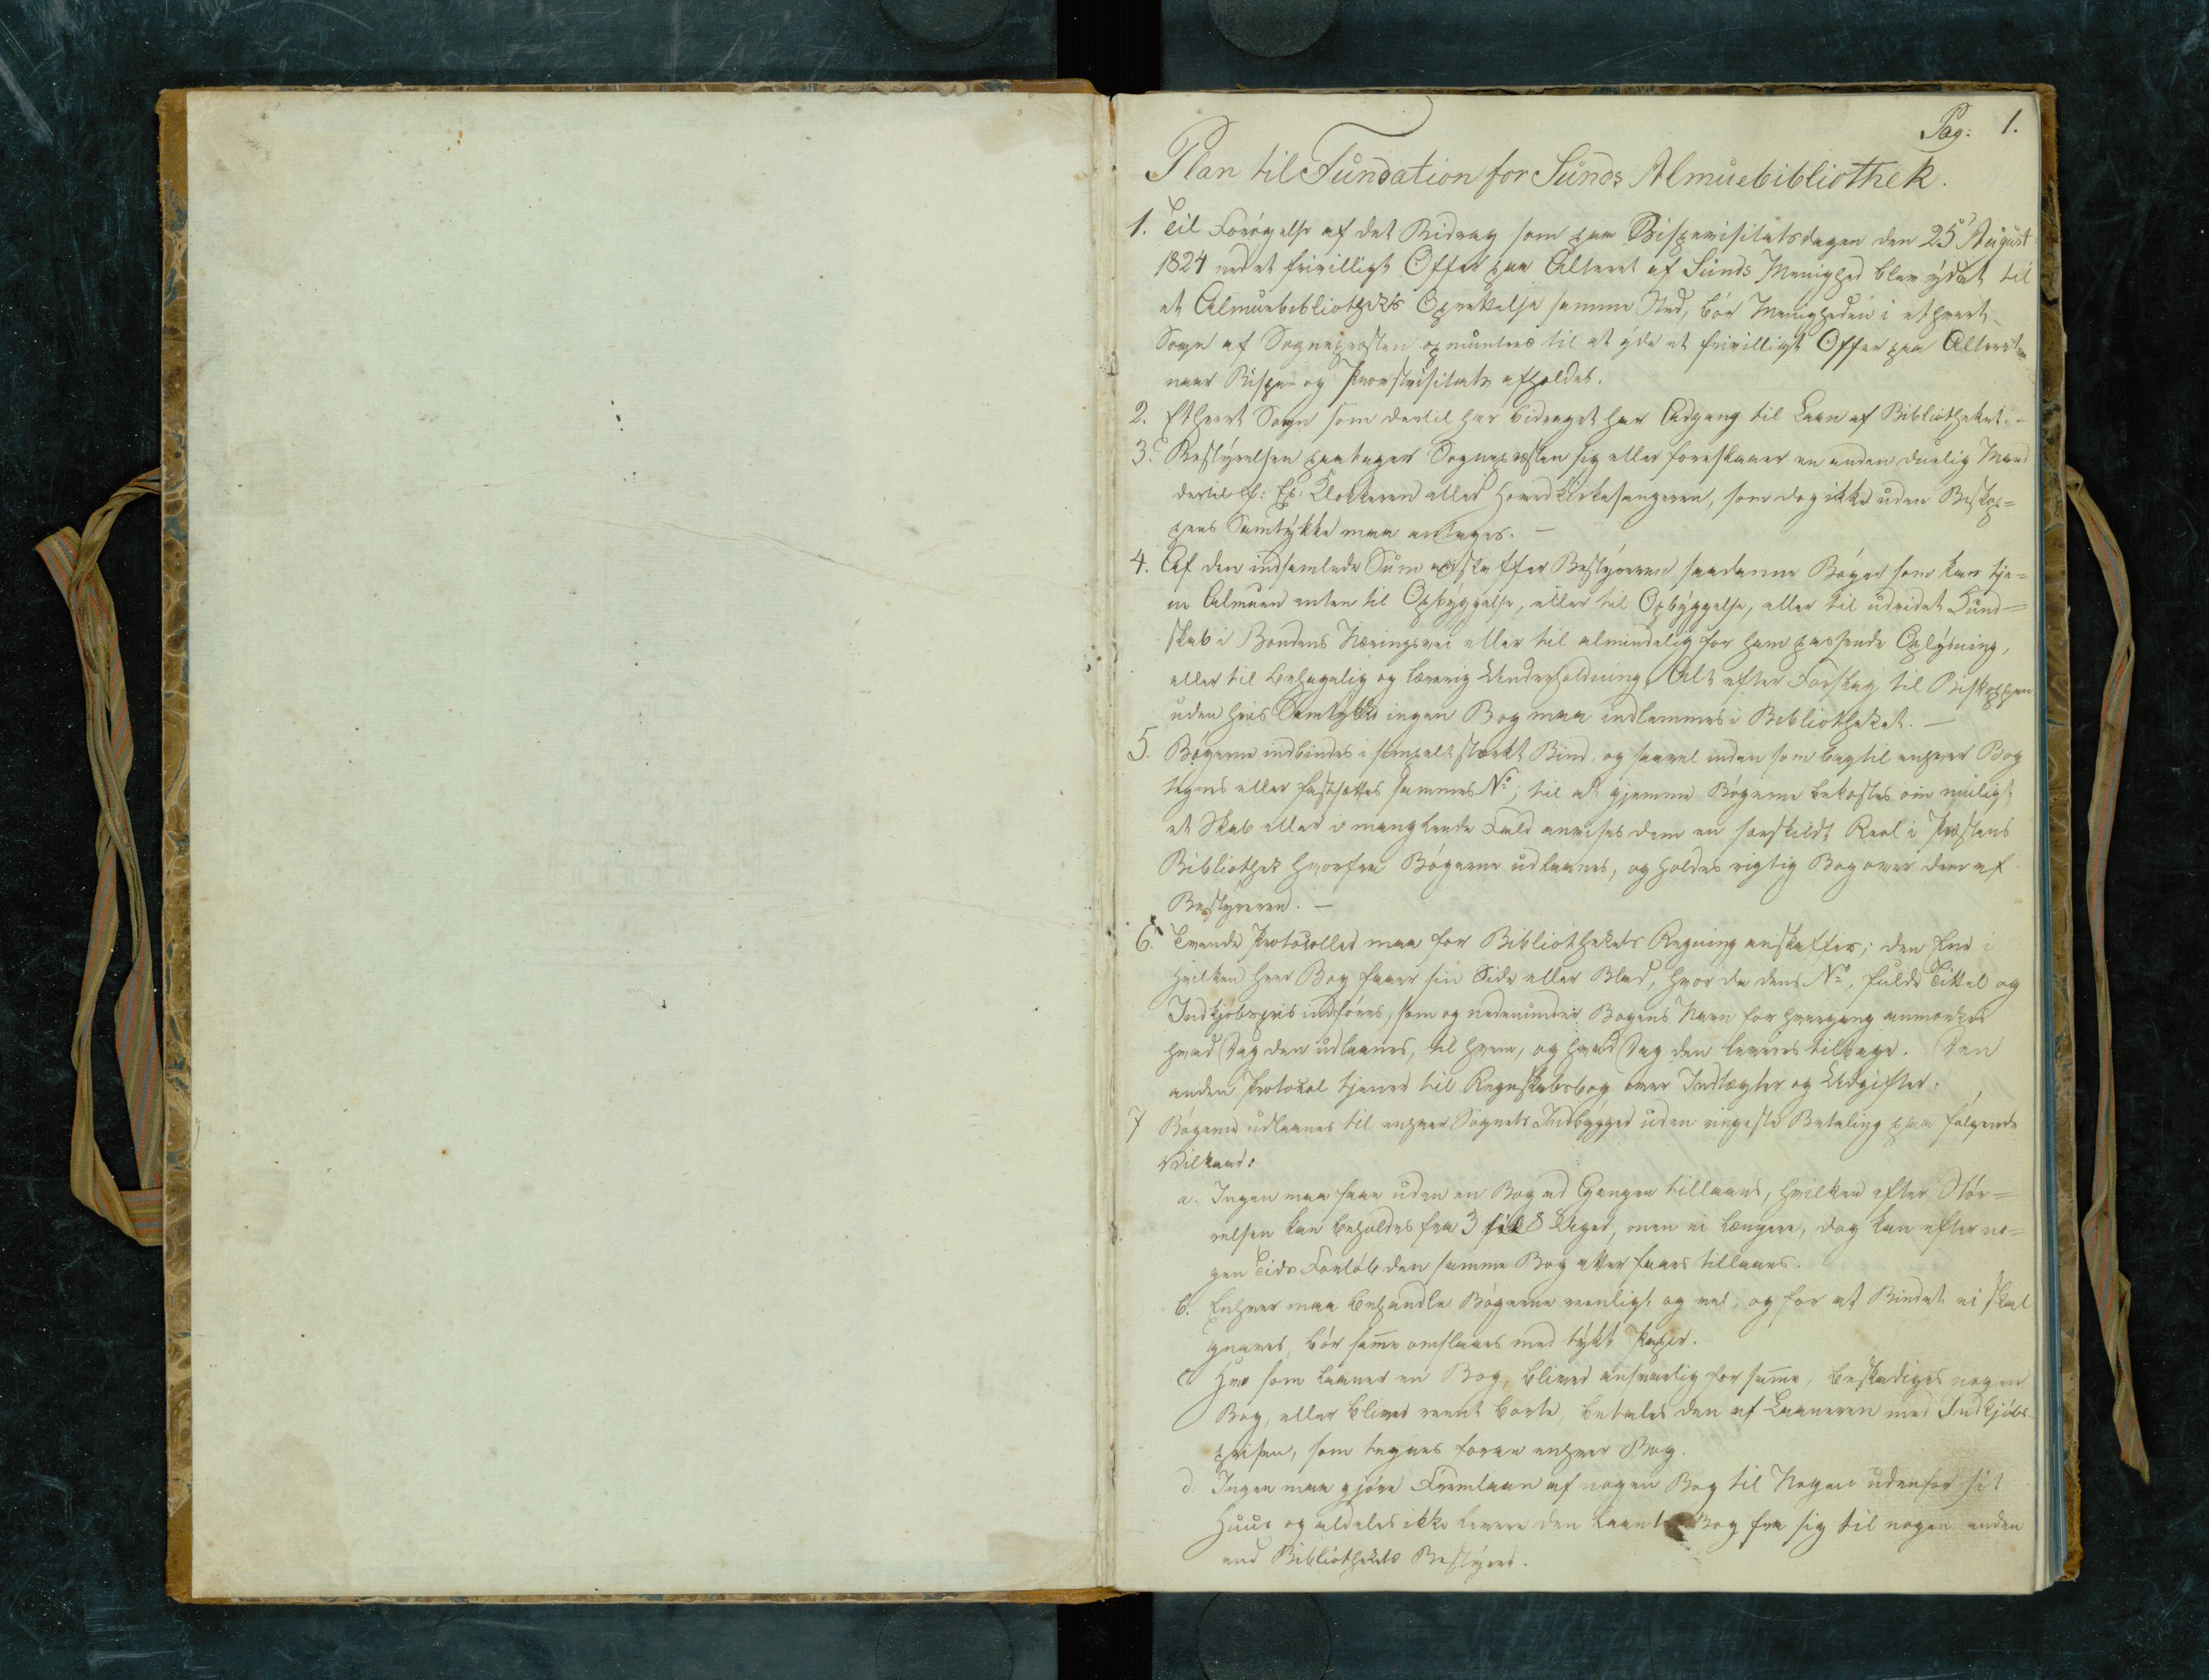 Pag: 1.
Plan til Fundation for Sunds Almuebibliothek.
1. Til Forøgelse af det Bidrag som paa Bispevisitatsdagen den 25 August
1824 ved et frivilligt Offer paa Alteret af Sunds Menighed blev ydet til
et Almuebibliotheks Oprettelse samme Sted, bør Menigheden i ethvert
Sogn af Sognepræsten opmuntres til at yde et frivilligt Offer paa Alteret
naar Bispe- og Provstvisitats afholdes.
2. Ethvert Sogn som dertil har bidraget har Adgang til Laan af Bibliotheket. -
3. Bestyrelsen paatager Sognepræsten sig eller foreslaaer en anden duelig Mand
dertil f: Ex: Klokkeren eller Hovedkirkesangeren, som dog ikke uden Biskop=
pens Samtykke maa antages. -
4. Af den indsamlede Sum anskaffer Bestyreren saadanne Bøger som kan tje=
ne Almuen enten til Opbyggelse, eller til Opbyggelse, eller til udvidet Kund=
skab i Bondens Næringsvei eller til almindelig for ham passende Oplysning,
eller til behagelig og lærerig Underholdning, Alt efter Forslag til Biskoppen
uden hvis Samtykke ingen Bog maa indlemmes i Bibliotheket. -
5. Bøgerne indbindes i simpelt stærkt Bind, og saavel inden som bagtil enhver Bog
tegnes eller fastsættes sammes No; til at gjemme Bøgerne bekostes om muligt
et Skab eller i manglende Fald anvises dem en særskildt Reol i Præstens
Bibliothek hvorfra Bøgerne udlaanes, og holdes rigtig Bog over dem af
Bestyreren. -
6. Tvende Protocoller maa for Bibliothekets Regning anskaffes; den Ene i
hvilken hver Bog faaer sin Side eller Blad, hvor da dens No, fulde Tittel og
Indkjøbspris indføres, som og nedenunder Bogens Navn for hvergang anmærkes
hvad Dag den udlaanes, til hvem, og hvad Dag den leveres tilbage. Den
anden Protocol tjener til Regnskabsbog over Indtægter og Udgifter.
7 Bøgerne udlaanes til enhver Sognets Indbygger uden ringeste Betaling paa følgende
Vilkaar:
a. Ingen maa faae uden en Bog ad Gangen tillaans, hvilken efter Stør=
relsen kan beholdes fra 3 til 8 Uger, men ei længere, dog kan efter no=
gen Tids Forløb den samme Bog atter faaes tillaans.
b. Enhver maa behandle Bøgerne reenligt og vel, og for at Bindet ei skal
gnaves, bør samme omslaaes med tykt Papir.
c. Hvo som laaner en Bog, bliver ansvarlig for samme, beskadiges nogen
Bog, eller bliver reent borte, betales den af Laaneren med Indkjøbs-
prisen, som tegnes foran enhver Bog.
d. Ingen maa gjøre Fremlaan af nogen Bog til Nogen udenfor sit
Huus og aldeles ikke levere den laante Bog fra sig til nogen anden
end Bibliothekets Bestyrer.